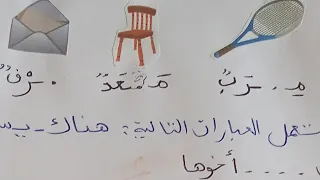 مِـ..ـرَبٌ مَـقْـعَدٌ .ـرْفٌ
ـتعمل العبارات التالية: هناك - يسـ
.... أخوها